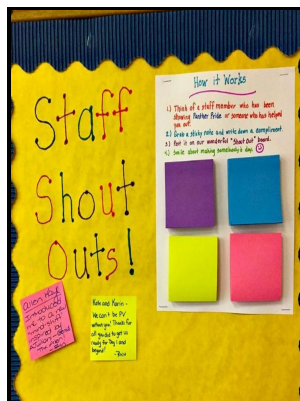 Staff
Shout
Outs!
How it Works
1) Think of a staff member who has been
showing Panther Pride or someone who has helped
you out.
2) Grab a sticky note and write down a compliment.
3) Post it on our wonderful "Shout Out" board.
4) Smile about making somebody's day.
introduced
me to a
Kate and Karin-
We can't be PV
without you! Thanks for
all you do to get us
ready for Day 1 and
beyond!